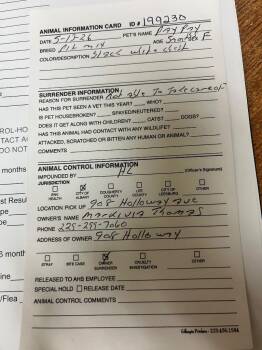 ANIMAL INFORMATION CARD ID # 199230
DATE 5-17-26 PET'S NAME Pny Pny
BREED Pit mix AGE 5months F
COLOR/DESCRIPTION Black white chest
SURRENDER INFORMATION
REASON FOR SURRENDER Not able to take care of
HAS THIS PET BEEN A VET THIS YEAR? WHO?
IS PET HOUSEBROKEN? SPAYED/NEUTERED?
DOES IT GET ALONG WITH CHILDREN? CATS? DOGS?
HAS THIS ANIMAL HAD CONTACT WITH ANY WILDLIFE?
ATTACKED, SCRATCHED OR BITTEN ANY HUMAN OR ANIMAL?
COMMENTS
ANIMAL CONTROL INFORMATION
IMPOUNDED BY HL (Officer's Signature)
JURISDICTION
ENV. HEALTH CITY OF ALBANY DOUGHERTY COUNTY LEE COUNTY CITY OF LEESBURG OTHER
LOCATION PICK UP 908 Holloway ave
OWNER'S NAME Thomas
PHONE 225-255-7060
ADDRESS OF OWNER 908 Holloway
STRAY BITE CASE OWNER SURRENDER CRUELTY INVESTIGATION OTHER
RELEASED TO AHS EMPLOYEE
SPECIAL HOLD RELEASE DATE
ANIMAL CONTROL COMMENTS
OL HO
DO NOT
months
st Resul
pe
/Flea
6 month